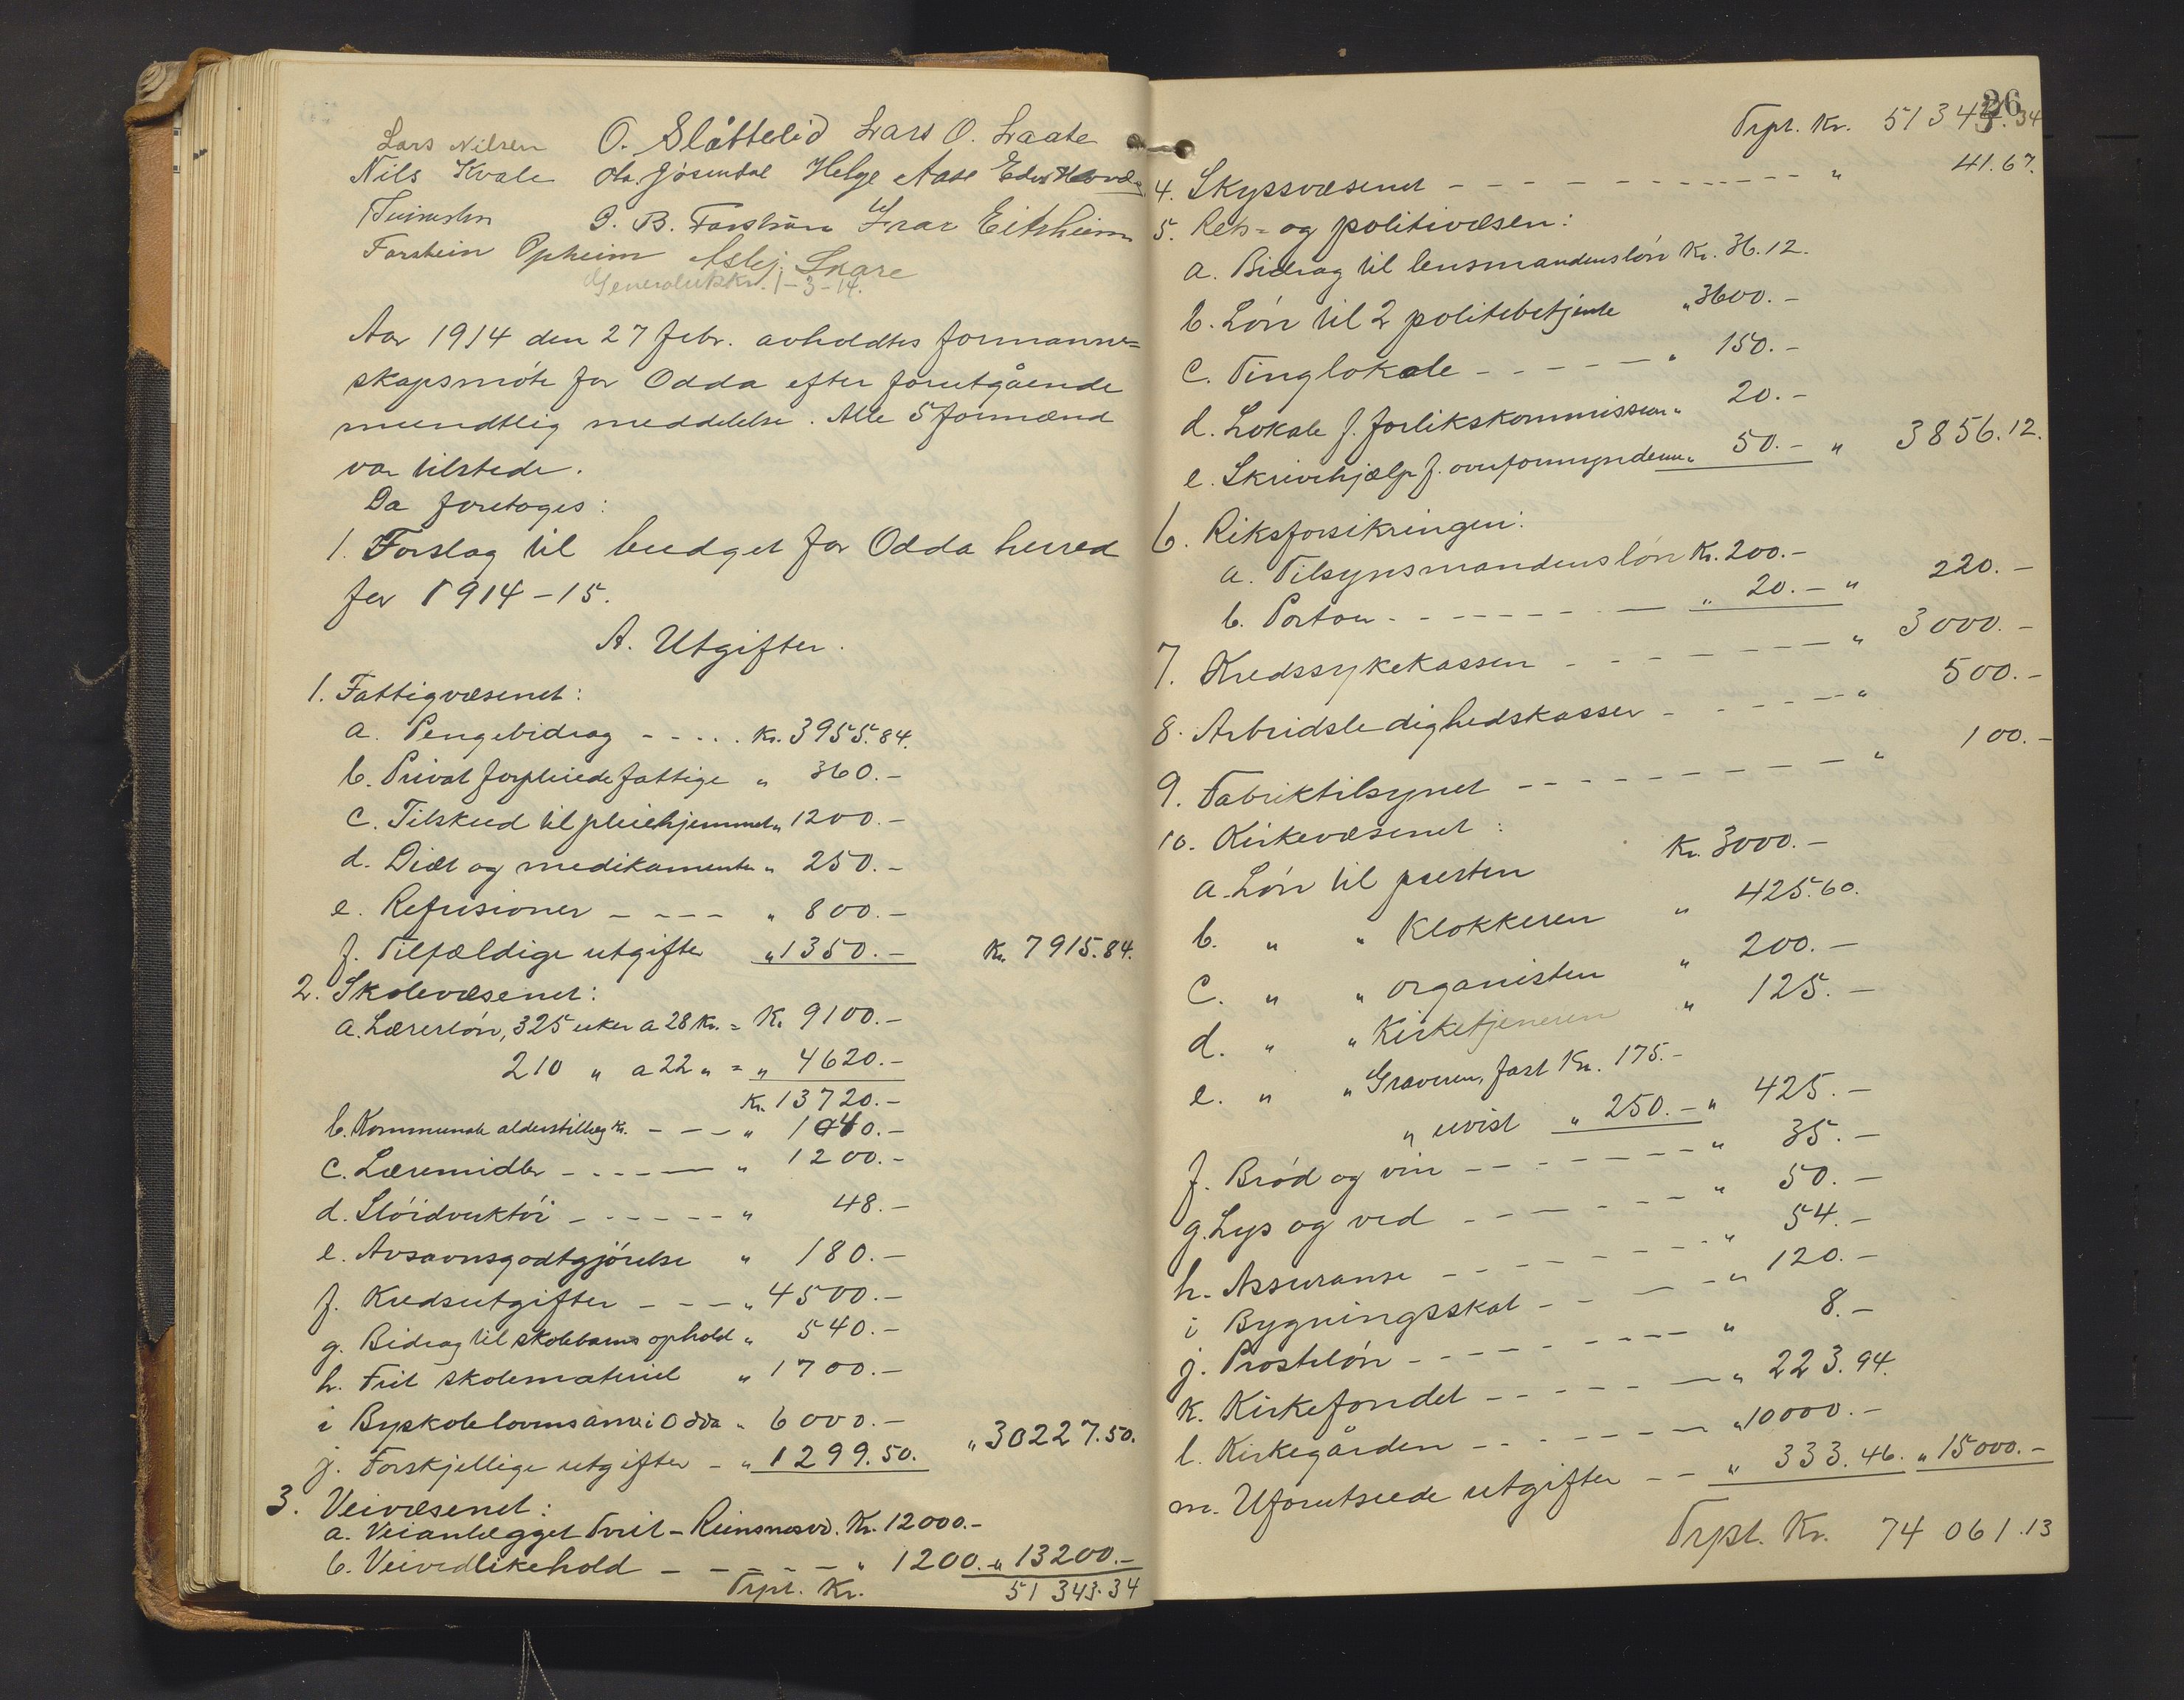 Lars Nilsen O. Slåttelid Lars O. Laate
Nils Kvale Ola Jösendal Helge Aase Edv. Hovda
G. B. Tarstrøm Ivar Eitrheim
Torstein Opheim Aslej. Skare
Generalutskr. 1-3-14.
Aar 1914 den 27 febr. avholdtes formann=
skapsmöte for Odda efter forutgående
mundtlig meddelelse. Alle 5 formænd
var tilstede.
Da foretoges:
1. Forslag til budget for Odda herred
for 1914-15.
A. Utgifter.
1. Fattigvæsenet:
a. Pengebidrag - - - . Kr. 3955.84.
b. Privat forpleiede fattige " 360.-
c. Tilskud til pleiehjemmet " 1200.-
d. Diæt og medikamenter " 250.-
e. Refusioner - - - - " 800.-
f. Tilfældige utgifter " 1350.- Kr. 7915.84.
2. Skolevæsenet:
a. Lærerlön, 325 uker a 28 Kr. = Kr. 9100.-
210 " a 22 " = " 4620.-
Kr. 13720.-
b. Kommunale alderstillæg Kr. - - - " 1040.-
c. Læremidler - - - - - " 1200.-
d. Slöidverktöi - - - - - - " 48.-
e. Avsavnsgodtgjörelse " 180.-
f. Kredsutgifter - - - " 4500.-
g. Bidrag til skolebarns ophold " 540.-
h. Frit skolemateriel " 1700.-
i Byskolelovens anv. i Odda " 6000.-
j. Forskjellige utgifter - " 1299.50. " 30227.50.
3. Veivæsenet:
a. Veianlægget Tveit - Reinsnosvd. Kr. 12000.-
b. Veivedlikehold - - - - - " 1200.- " 13200.-
Trpt. Kr. 51 343.34
26
Trpt. Kr. 51343.34
4. Skyssvæsenet - - - - - - - - - - " 41.67.
5. Rets- og politivæsen:
a. Bidrag til lensmandenslön Kr. 36.12.
b. Lön til 2 politibetjente " 3600.-
c. Tinglokale - - - - - " 150.-
d. Lokale f. forlikskommissionen " 20.-
e. Skrivehjælp f. overformynderne " 50.- " 3856.12.
6. Riksforsikringen:
a. Tilsynsmandens lön Kr. 200.-
b. Portoer - - - - - - - " 20.- " 220.-
7. Kredssykekassen - - - - - - - " 3000.-
8. Arbeidsledighedskasser - - - - - " 500.-
9. Fabriktilsynet - - - - - - - - - " 100.-
10. Kirkevæsenet:
a. Lön til presten Kr. 3000.-
b. " " Klokkeren " 425.60.
c. " " organisten " 200.-
d. " " Kirketjeneren " 125.-
e. " " Graveren, fast Kr. 175.-
" uvist " 250.- " 425.-
f. Bröd og vin - - - - - - - " 35.-
g. Lys og ved - - - - - - - " 50.-
h. Assuranse - - - - - - - " 54.-
i Bygningsskat - - - - - " 120.-
j. Prostelön - - - - - - - " 8.-
k. Kirkefondet - - - - - " 223.94.
l. Kirkegården - - - - - - " 10000.-
m. Uforutseede utgifter - - " 333.46. " 15000.-
Trpt. Kr. 74 061.13